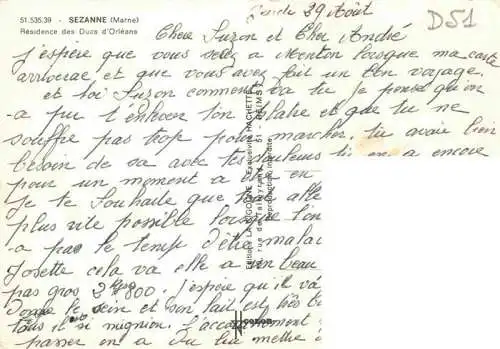 51.535.39 - SEZANNE (Marne)
Résidence des Ducs d'Orléans
29 Août
D51
Chere Suzon et Cher André
J'espère que vous serez a Menton lorsque ma carte
arriverac et que vous avez fait un bon voyage.
et toi Suzon comment va tu je pense qu'on
-a pu t'enlever ton platre et que tu ne
souffre pas trop pour marcher. tu avais bien
besoin de sa avec tes douleurs tu en a encore
pour un moment a être en
Je te souhaite que
plus vite possible lorsque l'on
-a pas le temps d'être malade
Josette cela va elle a un beau
pas gros 2kg800. J'espère qu'il va
le sein et son lait est très
tous il si mignion. L'accouchement
passer en a du lui mettre
Editions LA CIGOGNE - Exclusivité HACHETTE
rue de Talleyrand - 51 - REIMS
reproduction interdite